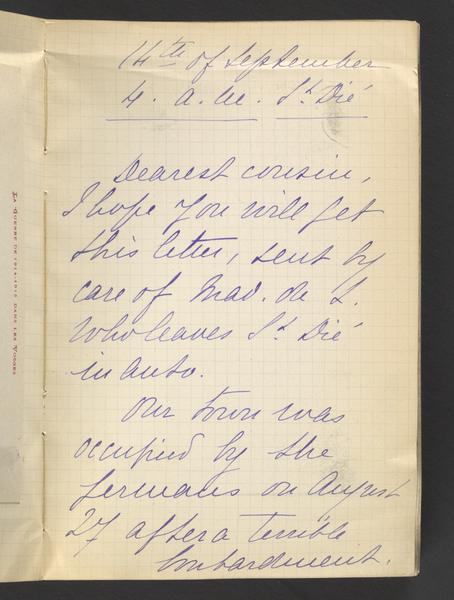 14th of September
4. a.m. St Dié
Dearest cousin,
I hope you will get
this letter, sent by
care of Mad. de L.
Who leaves St Dié
in auto.
Our town was
occupied by the
Germans on August
27 after a terrible
bombardment.
La Guerre de 1914-1915 dans les Vosges